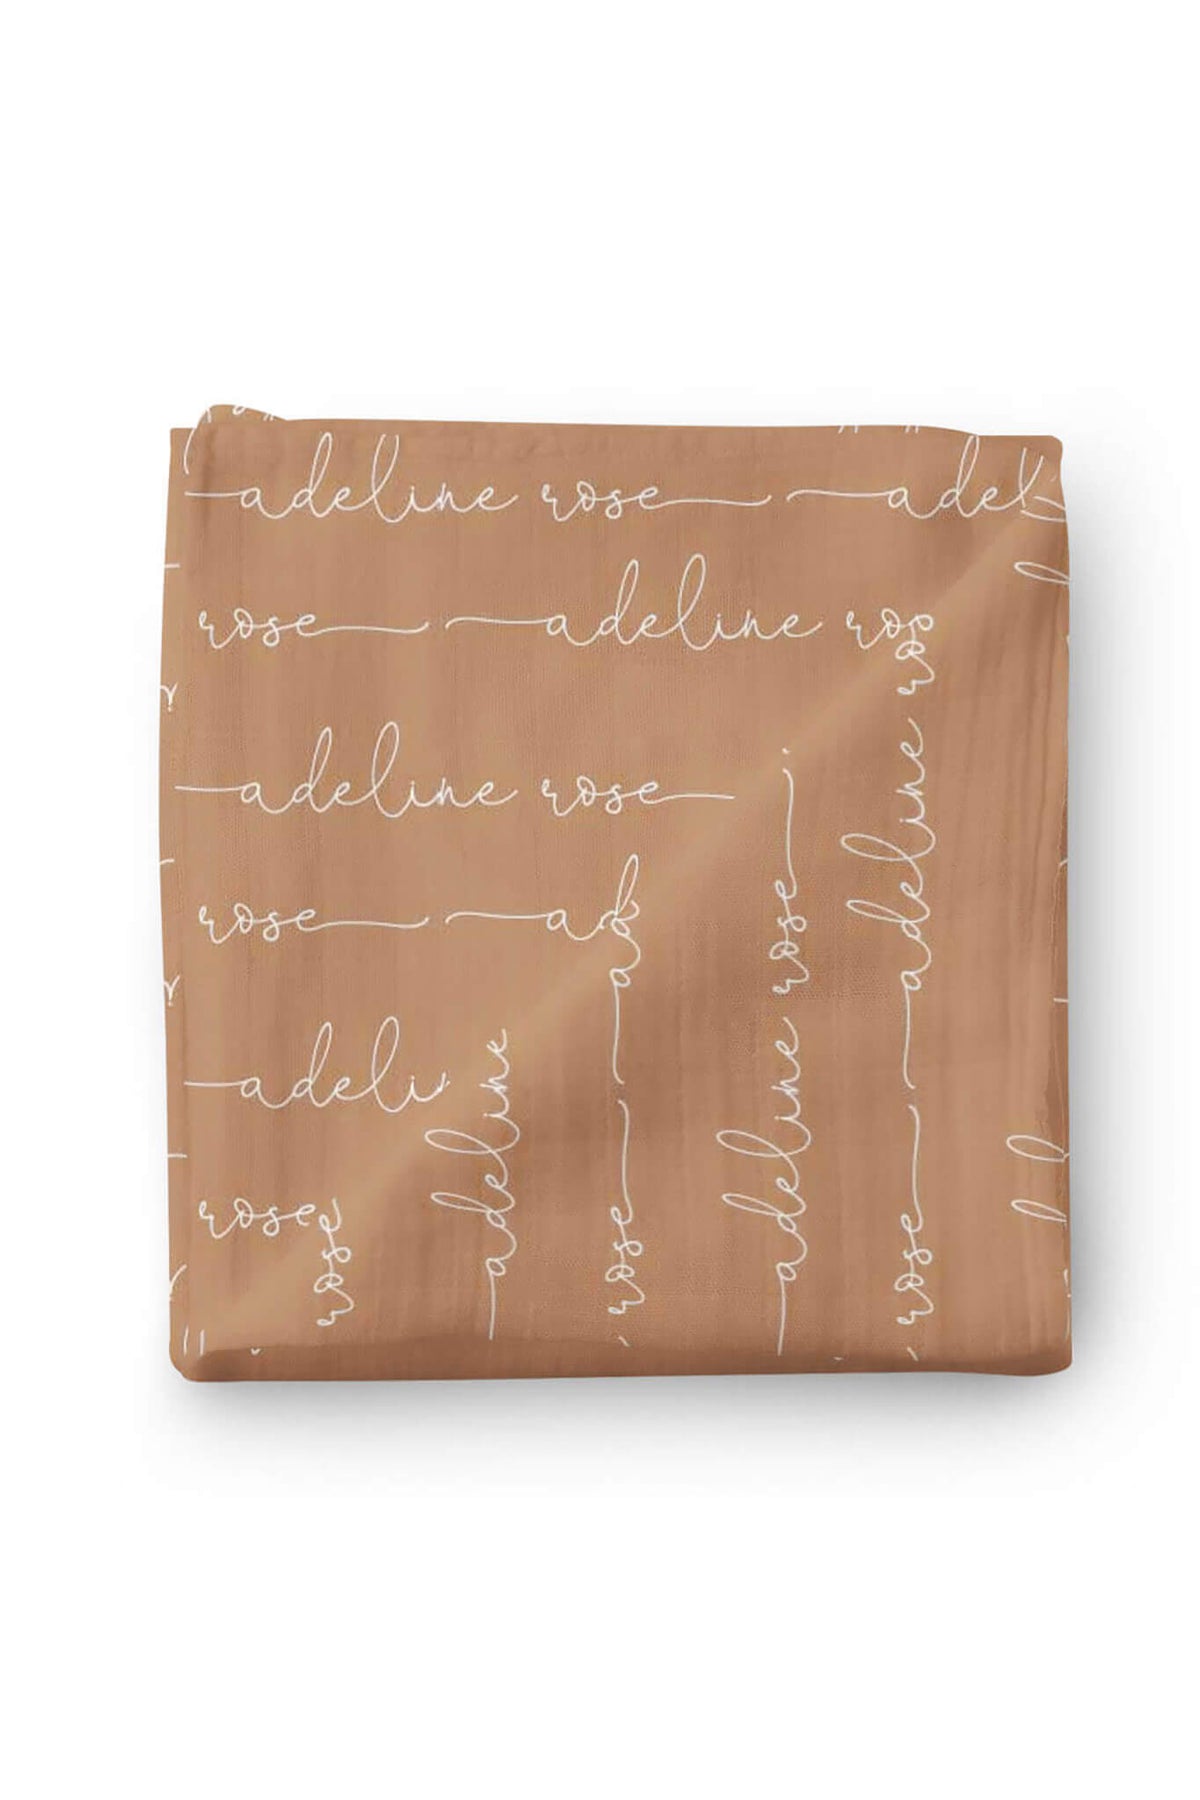 adeline rose adel
rose adeline ros
adeline rose
rose ad
adeli
rose
rose
adeline
rose a
adeline rose
rose adeline ros